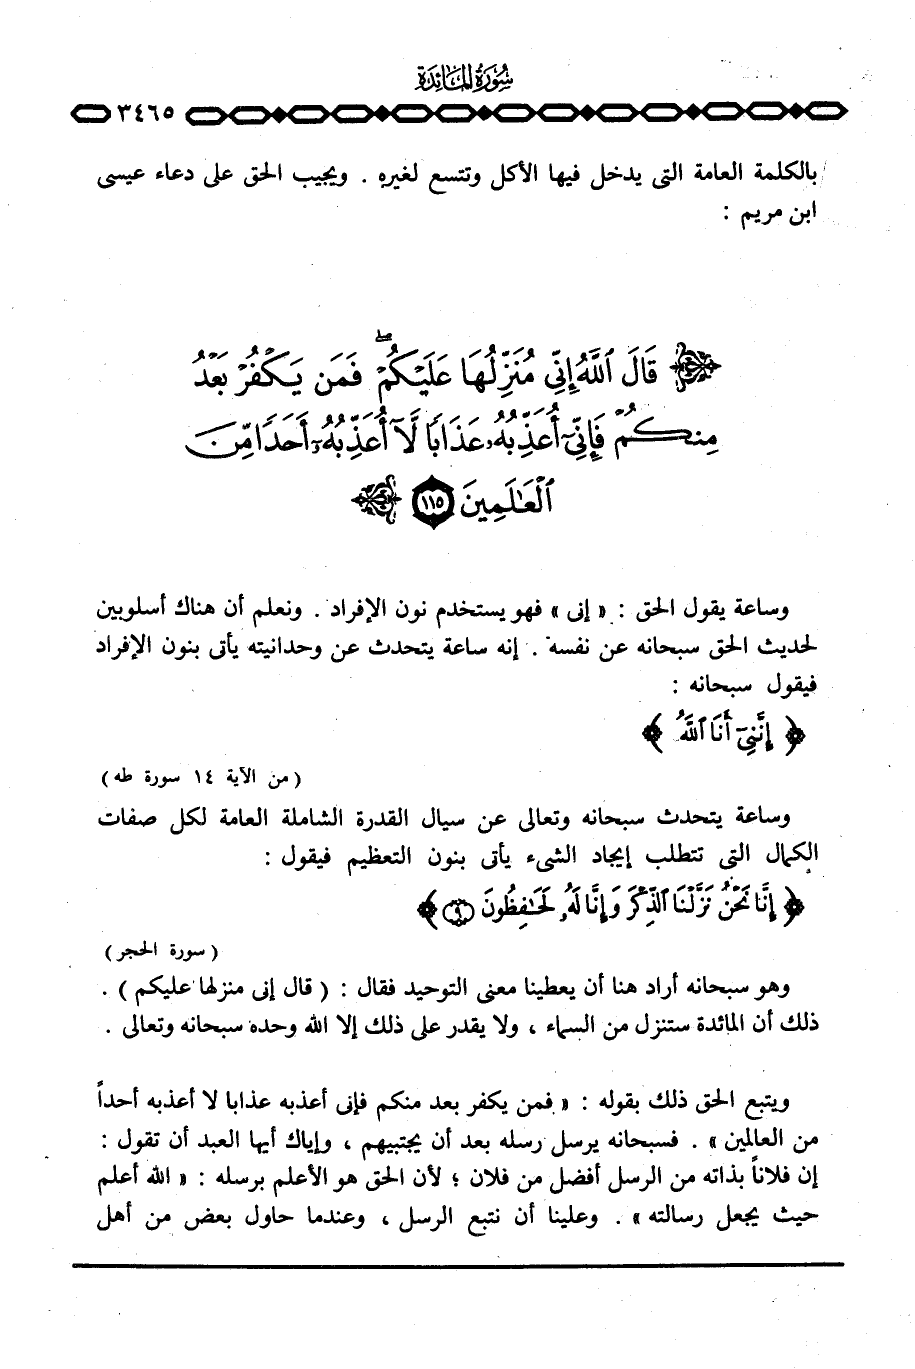 سُورَةُ المَائِدَةِ
٣٤٦٥
بالكلمة العامة التى يدخل فيها الأكل وتتسع لغيره . ويجيب الحق على دعاء عيسى
ابن مريم :
قَالَ ٱللَّهُ إِنِّي مُنَزِّلُهَا عَلَيْكُمْ ۖ فَمَن يَكْفُرْ بَعْدُ
مِنكُمْ فَإِنِّيٓ أُعَذِّبُهُۥ عَذَابًا لَّآ أُعَذِّبُهُۥٓ أَحَدًا مِّنَ
ٱلْعَـٰلَمِينَ ١١٥
وساعة يقول الحق : « إنى » فهو يستخدم نون الإفراد . ونعلم أن هناك أسلوبين
لحديث الحق سبحانه عن نفسه . إنه ساعة يتحدث عن وحدانيته يأتى بنون الإفراد
فيقول سبحانه :
﴿ إِنَّنِيٓ أَنَا ٱللَّهُ ﴾
( من الآية ١٤ سورة طه )
وساعة يتحدث سبحانه وتعالى عن سيال القدرة الشاملة العامة لكل صفات
الكمال التى تتطلب إيجاد الشىء يأتى بنون التعظيم فيقول :
﴿ إِنَّا نَحْنُ نَزَّلْنَا ٱلذِّكْرَ وَإِنَّا لَهُۥ لَحَـٰفِظُونَ ٩ ﴾
( سورة الحجر )
وهو سبحانه أراد هنا أن يعطينا معنى التوحيد فقال : ( قال إنى منزلها عليكم ) .
ذلك أن المائدة ستنزل من السماء ، ولا يقدر على ذلك إلا الله وحده سبحانه وتعالى .
ويتبع الحق ذلك بقوله : « فمن يكفر بعد منكم فإنى أعذبه عذابا لا أعذبه أحداً
من العالمين » . فسبحانه يرسل رسله بعد أن يجتبيهم ، وإياك أيها العبد أن تقول :
إن فلاناً بذاته من الرسل أفضل من فلان ؛ لأن الحق هو الأعلم برسله : « الله أعلم
حيث يجعل رسالته » . وعلينا أن نتبع الرسل ، وعندما حاول بعض من أهل